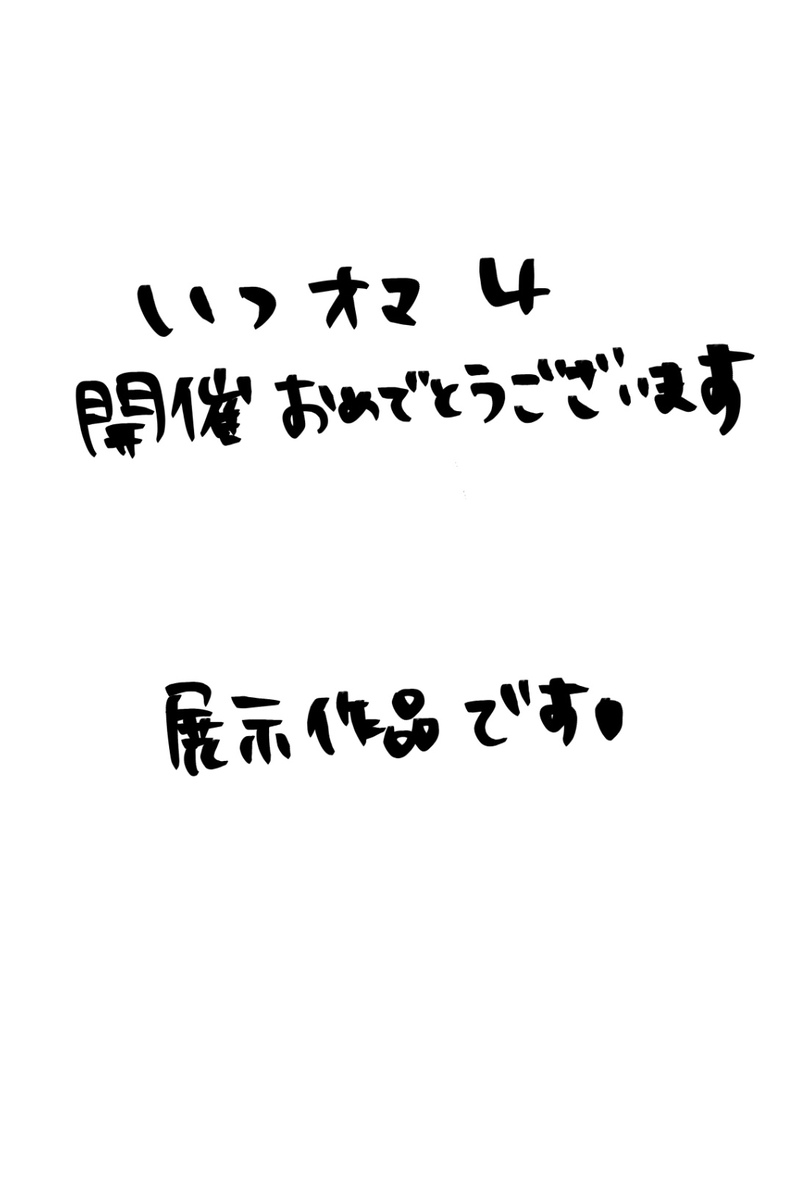 いつオマ 4
開催おめでとうございます
展示作品です。